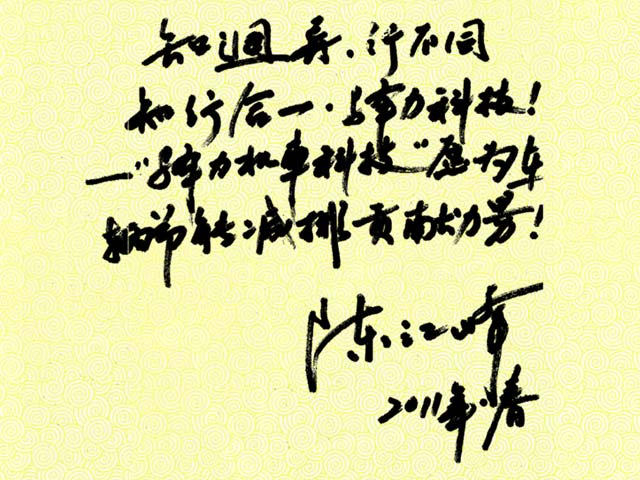 知週异、行不同
知行合一·与车力科技!
一"弹力机车科技"愿为车
辆节能减排贡献力量!
陈江峰
2011年·春